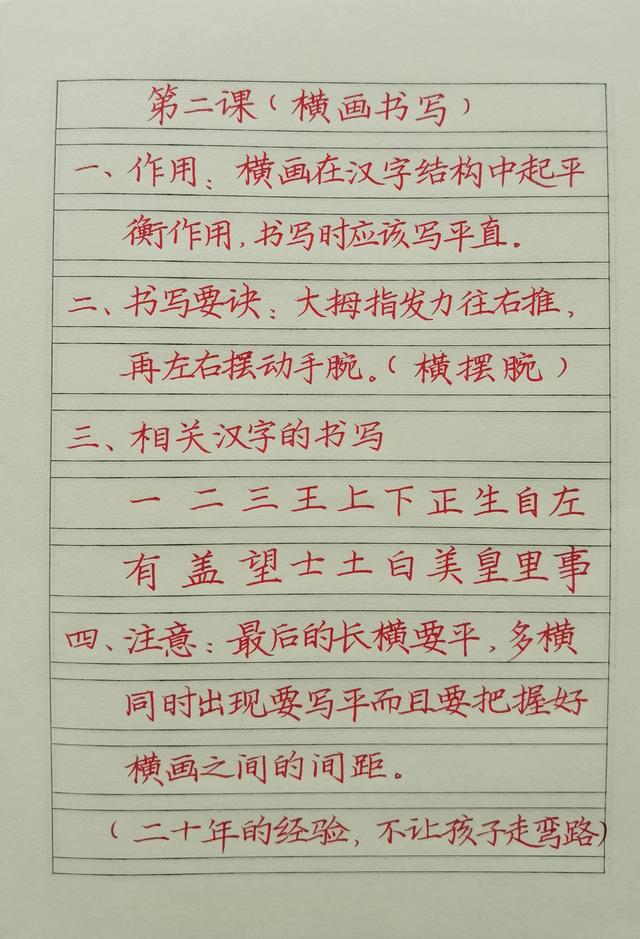 第二课（横画书写）
一、作用：横画在汉字结构中起平
衡作用，书写时应该写平直。
二、书写要诀：大拇指发力往右推，
再左右摆动手腕。（横摆腕）
三、相关汉字的书写
一二三王上下正生自左
有盖望士土白美皇里事
四、注意：最后的长横要平，多横
同时出现要写平而且要把握好
横画之间的间距。
（二十年的经验，不让孩子走弯路）